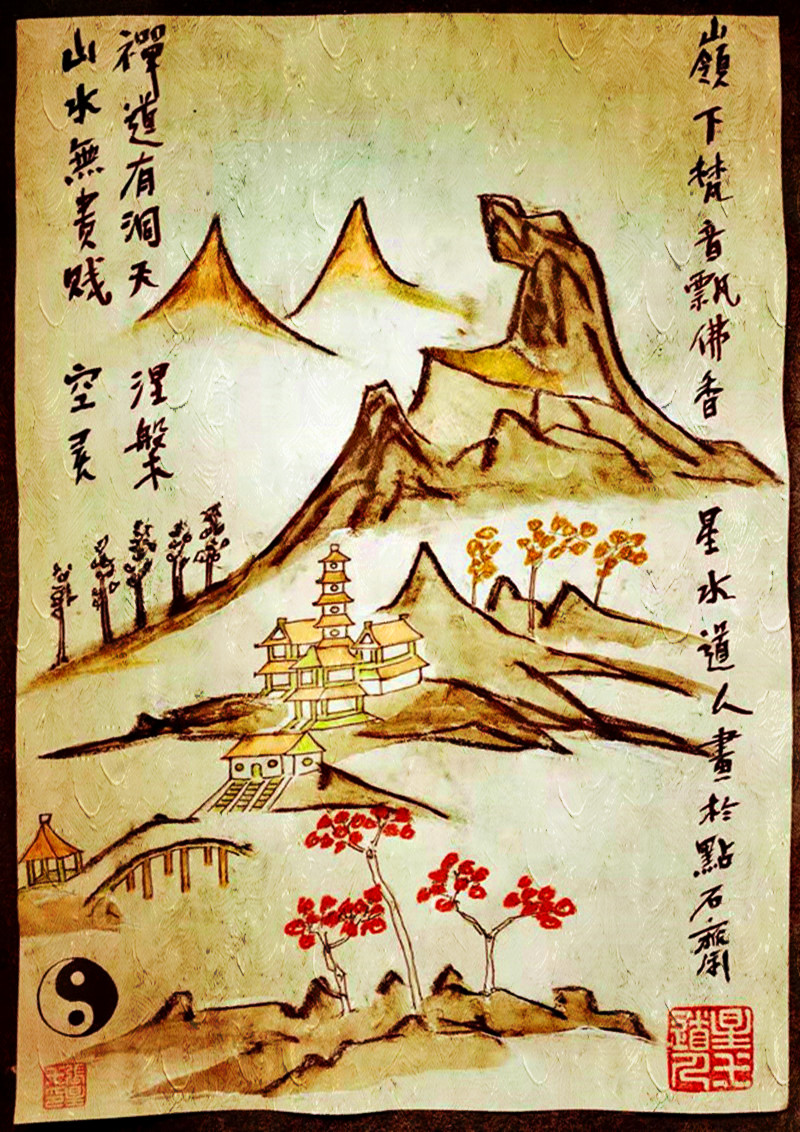 嶺下梵音飄佛香
星水道人畫於點石齋
禪道有洞天
涅槃
山水無貴賤
空灵
星水道人